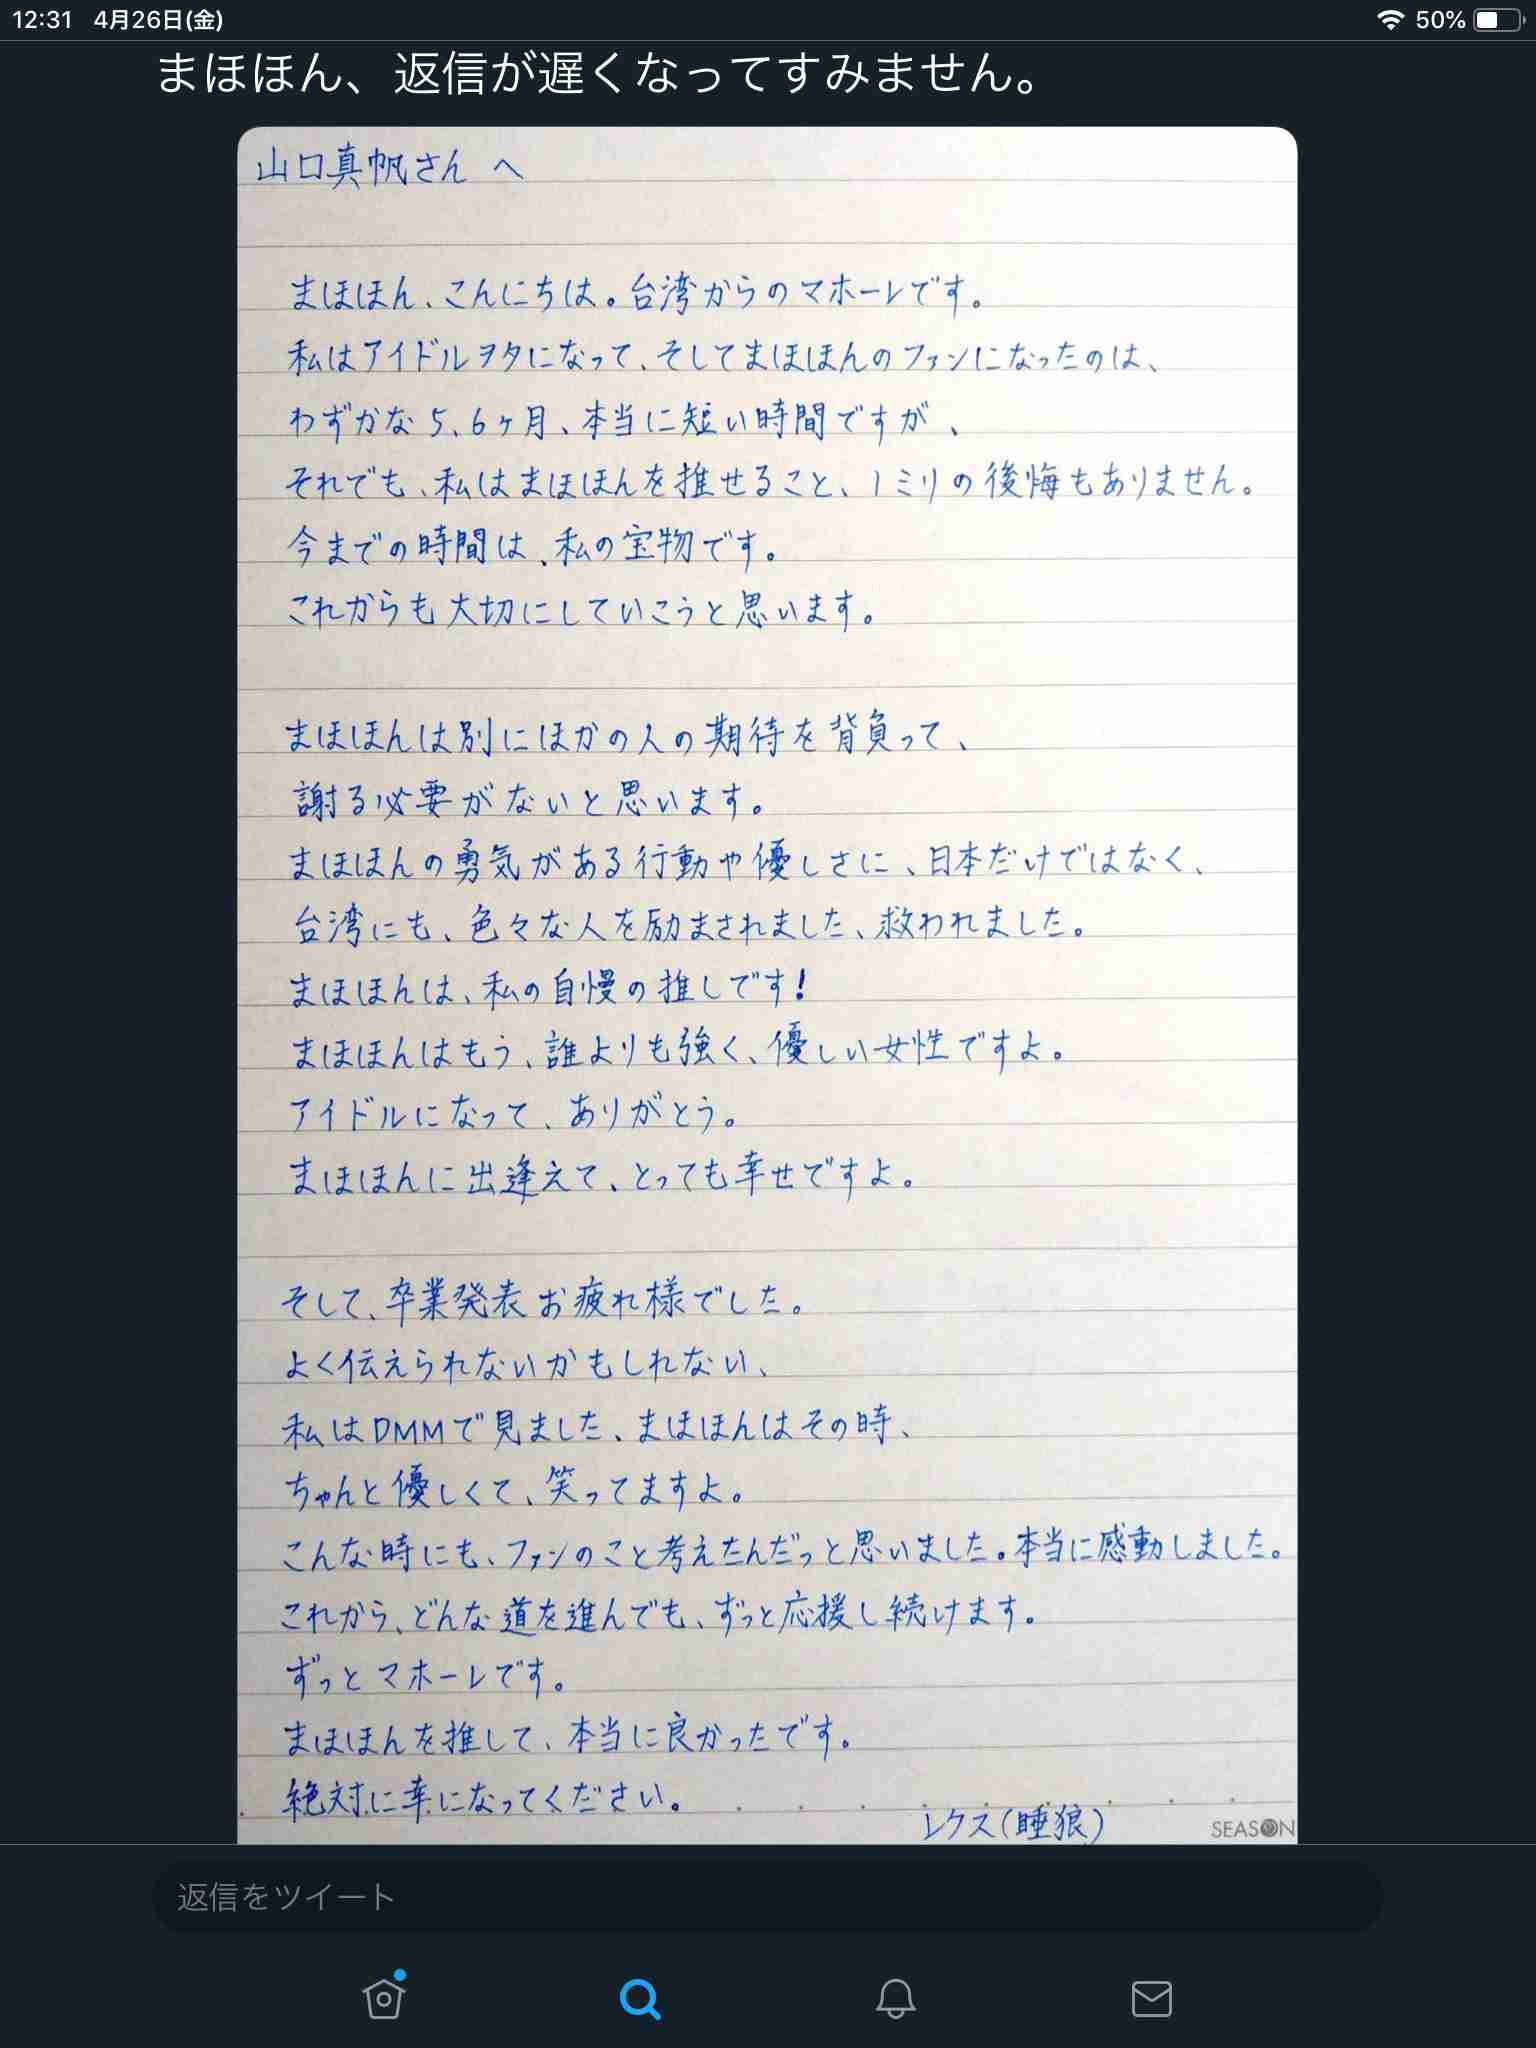 12:31 4月26日(金) 50%
まほほん、返信が遅くなってすみません。
山口真帆さん へ
まほほん、こんにちは。台湾からのマホーレです。
私はアイドルヲタになって、そしてまほほんのファンになったのは、
わずかな5、6ヶ月、本当に短い時間ですが、
それでも、私はまほほんを推せること、1ミリの後悔もありません。
今までの時間は、私の宝物です。
これからも大切にしていこうと思います。
まほほんは別にほかの人の期待を背負って、
謝る必要がないと思います。
まほほんの勇気がある行動や優しさに、日本だけではなく、
台湾にも、色々な人を励まされました、救われました。
まほほんは、私の自慢の推しです!
まほほんはもう、誰よりも強く、優しい女性ですよ。
アイドルになって、ありがとう。
まほほんに出逢えて、とっても幸せですよ。
そして、卒業発表お疲れ様でした。
よく伝えられないかもしれない、
私はDMMで見ました、まほほんはその時、
ちゃんと優しくて、笑ってますよ。
こんな時にも、ファンのこと考えたんだっと思いました。本当に感動しました。
これから、どんな道を進んでも、ずっと応援し続けます。
ずっとマホーレです。
まほほんを推して、本当に良かったです。
絶対に幸になってください。
レクス(睡狼)
SEASON
返信をツイート